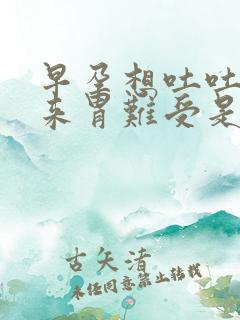 早孕想吐吐
来胃难受是
古矢清
未经同意禁止转载